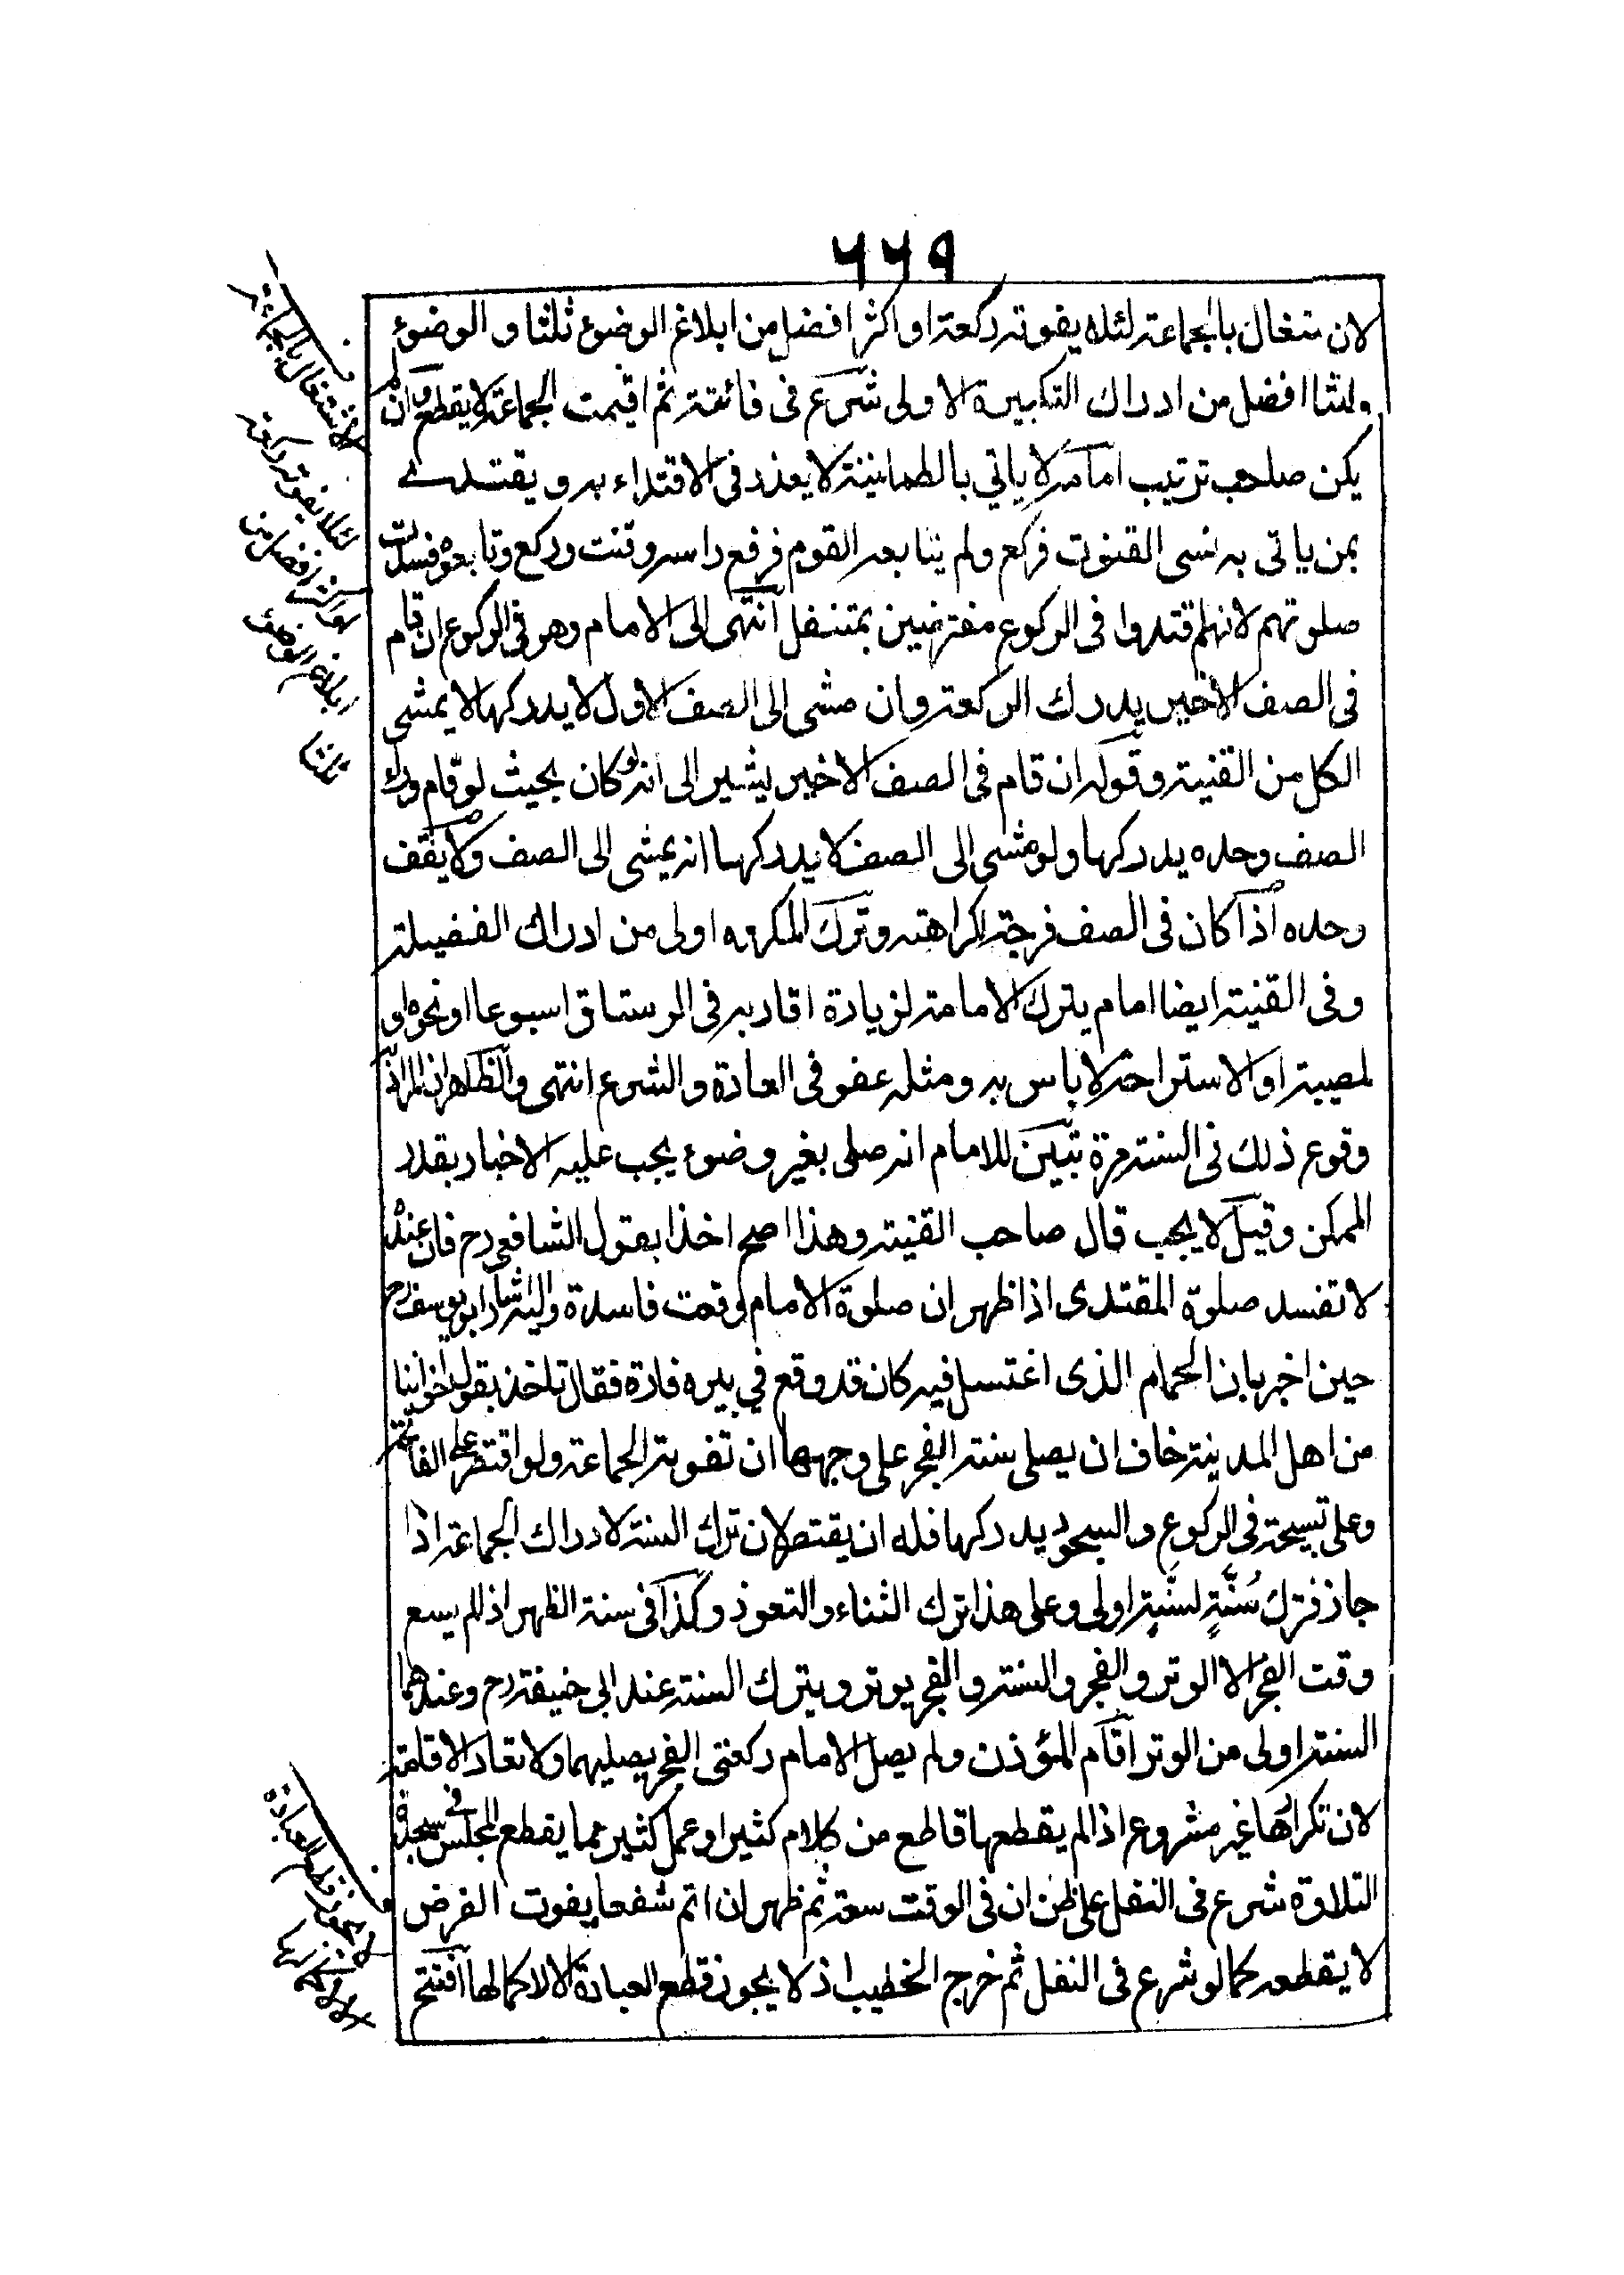 ٦٦٩
لان شتغال بالجماعة لئلا يفوته ركعة او اكثر افضل من ابلاغ الوضوء ثلثا و الوضوء
ثلثا افضل من ادراك التكبيرة الاولى شرع فى فائتة ثم اقيمت الجماعة لا يقطع وان لم
يكن صاحب ترتيب امامه لا ياتي بالطمانينة لا يعذر فى الاقتداء به و يقتدى
بمن ياتى به نسى القنوت فركع ولم يتابعه القوم فرفع راسه وقنت وركع وتابعوه فسدت
صلوتهم لانهم اقتدوا فى الركوع مفترضين بمتنفل انتهى الى الامام وهو فى الركوع ان قام
فى الصف الاخير يدرك الركعة وان مشى الى الصف الاول لا يدركها لا يمشى
الكل من القنية وقوله ان قام فى الصف الاخير يشير الى انه لو كان بحيث لو قام وراء
الصف وحده يدركها ولو مشى الى الصف لا يدركها انه يمشى الى الصف ولا يقف
وحده اذا كان فى الصف فرجة لكراهته وترك المكروه اولى من ادراك الفضيلة
وفى القنية ايضا امام يترك الامامة لزيادة اقاربه فى الرستاق اسبوعا او نحوه او
لمصيبة او لاستراحة لا باس به ومثله عفو فى العادة والشرع انتهى والظاهر ان المراد
وقوع ذلك فى السنة مرة تبين للامام انه صلى بغير وضوء يجب عليه الاخبار بقدر
الممكن وقيل لا يجب قال صاحب القنية وهذا اصح اخذا بقول الشافعى رح فان عنده
لا تفسد صلوة المقتدى اذا ظهر ان صلوة الامام وقعت فاسدة واليه اشار ابو يوسف رح
حين اخبر بان الحمام الذى اغتسل فيه كان قد وقع في بيره فارة فقال ناخذ بقول اخواننا
من اهل المدينة خاف ان يصلى سنة الفجر على وجهها ان تفوته الجماعة ولو اقتصر على الفاتحة
وعلى تسبيحة فى الركوع والسجود يدركها فله ان يقتصر لان ترك السنة لادراك الجماعة اذا
جاز فترك سُنَّةٍ لسُنَّةٍ اولى وعلى هذا ترك الثناء والتعوذ وكذا فى سنة الظهر اذ لم يسع
وقت الفجر الا الوتر والفجر والسنة والفجر يوتر ويترك السنة عند ابى حنيفة رح وعندهما
السنة اولى من الوتر اقام المؤذن ولم يصل الامام ركعتى الفجر يصليهما ولا تعاد الاقامة
لان تكرارها غير مشروع اذا لم يقطعها قاطع من كلام كثير او عمل كثير مما يقطع المجلس فى سجدة
التلاوة شرع فى النفل على ظن ان فى الوقت سعة ثم ظهر ان اتم شفعا يفوت الفرض
لا يقطعه كما لو شرع فى النفل ثم خرج الخطيب اذ لا يجوز قطع العبادة الا لاكمالها افتتح
الاشتغال بالجماعة
لئلا يفوته ركعة
او اكثر افضل من
ابلاغ الوضوء
ثلثا
لا يجوز قطع العبادة
الا لاكمالها